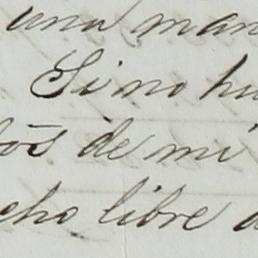 una man
Si no hu
de mi
cho libre d